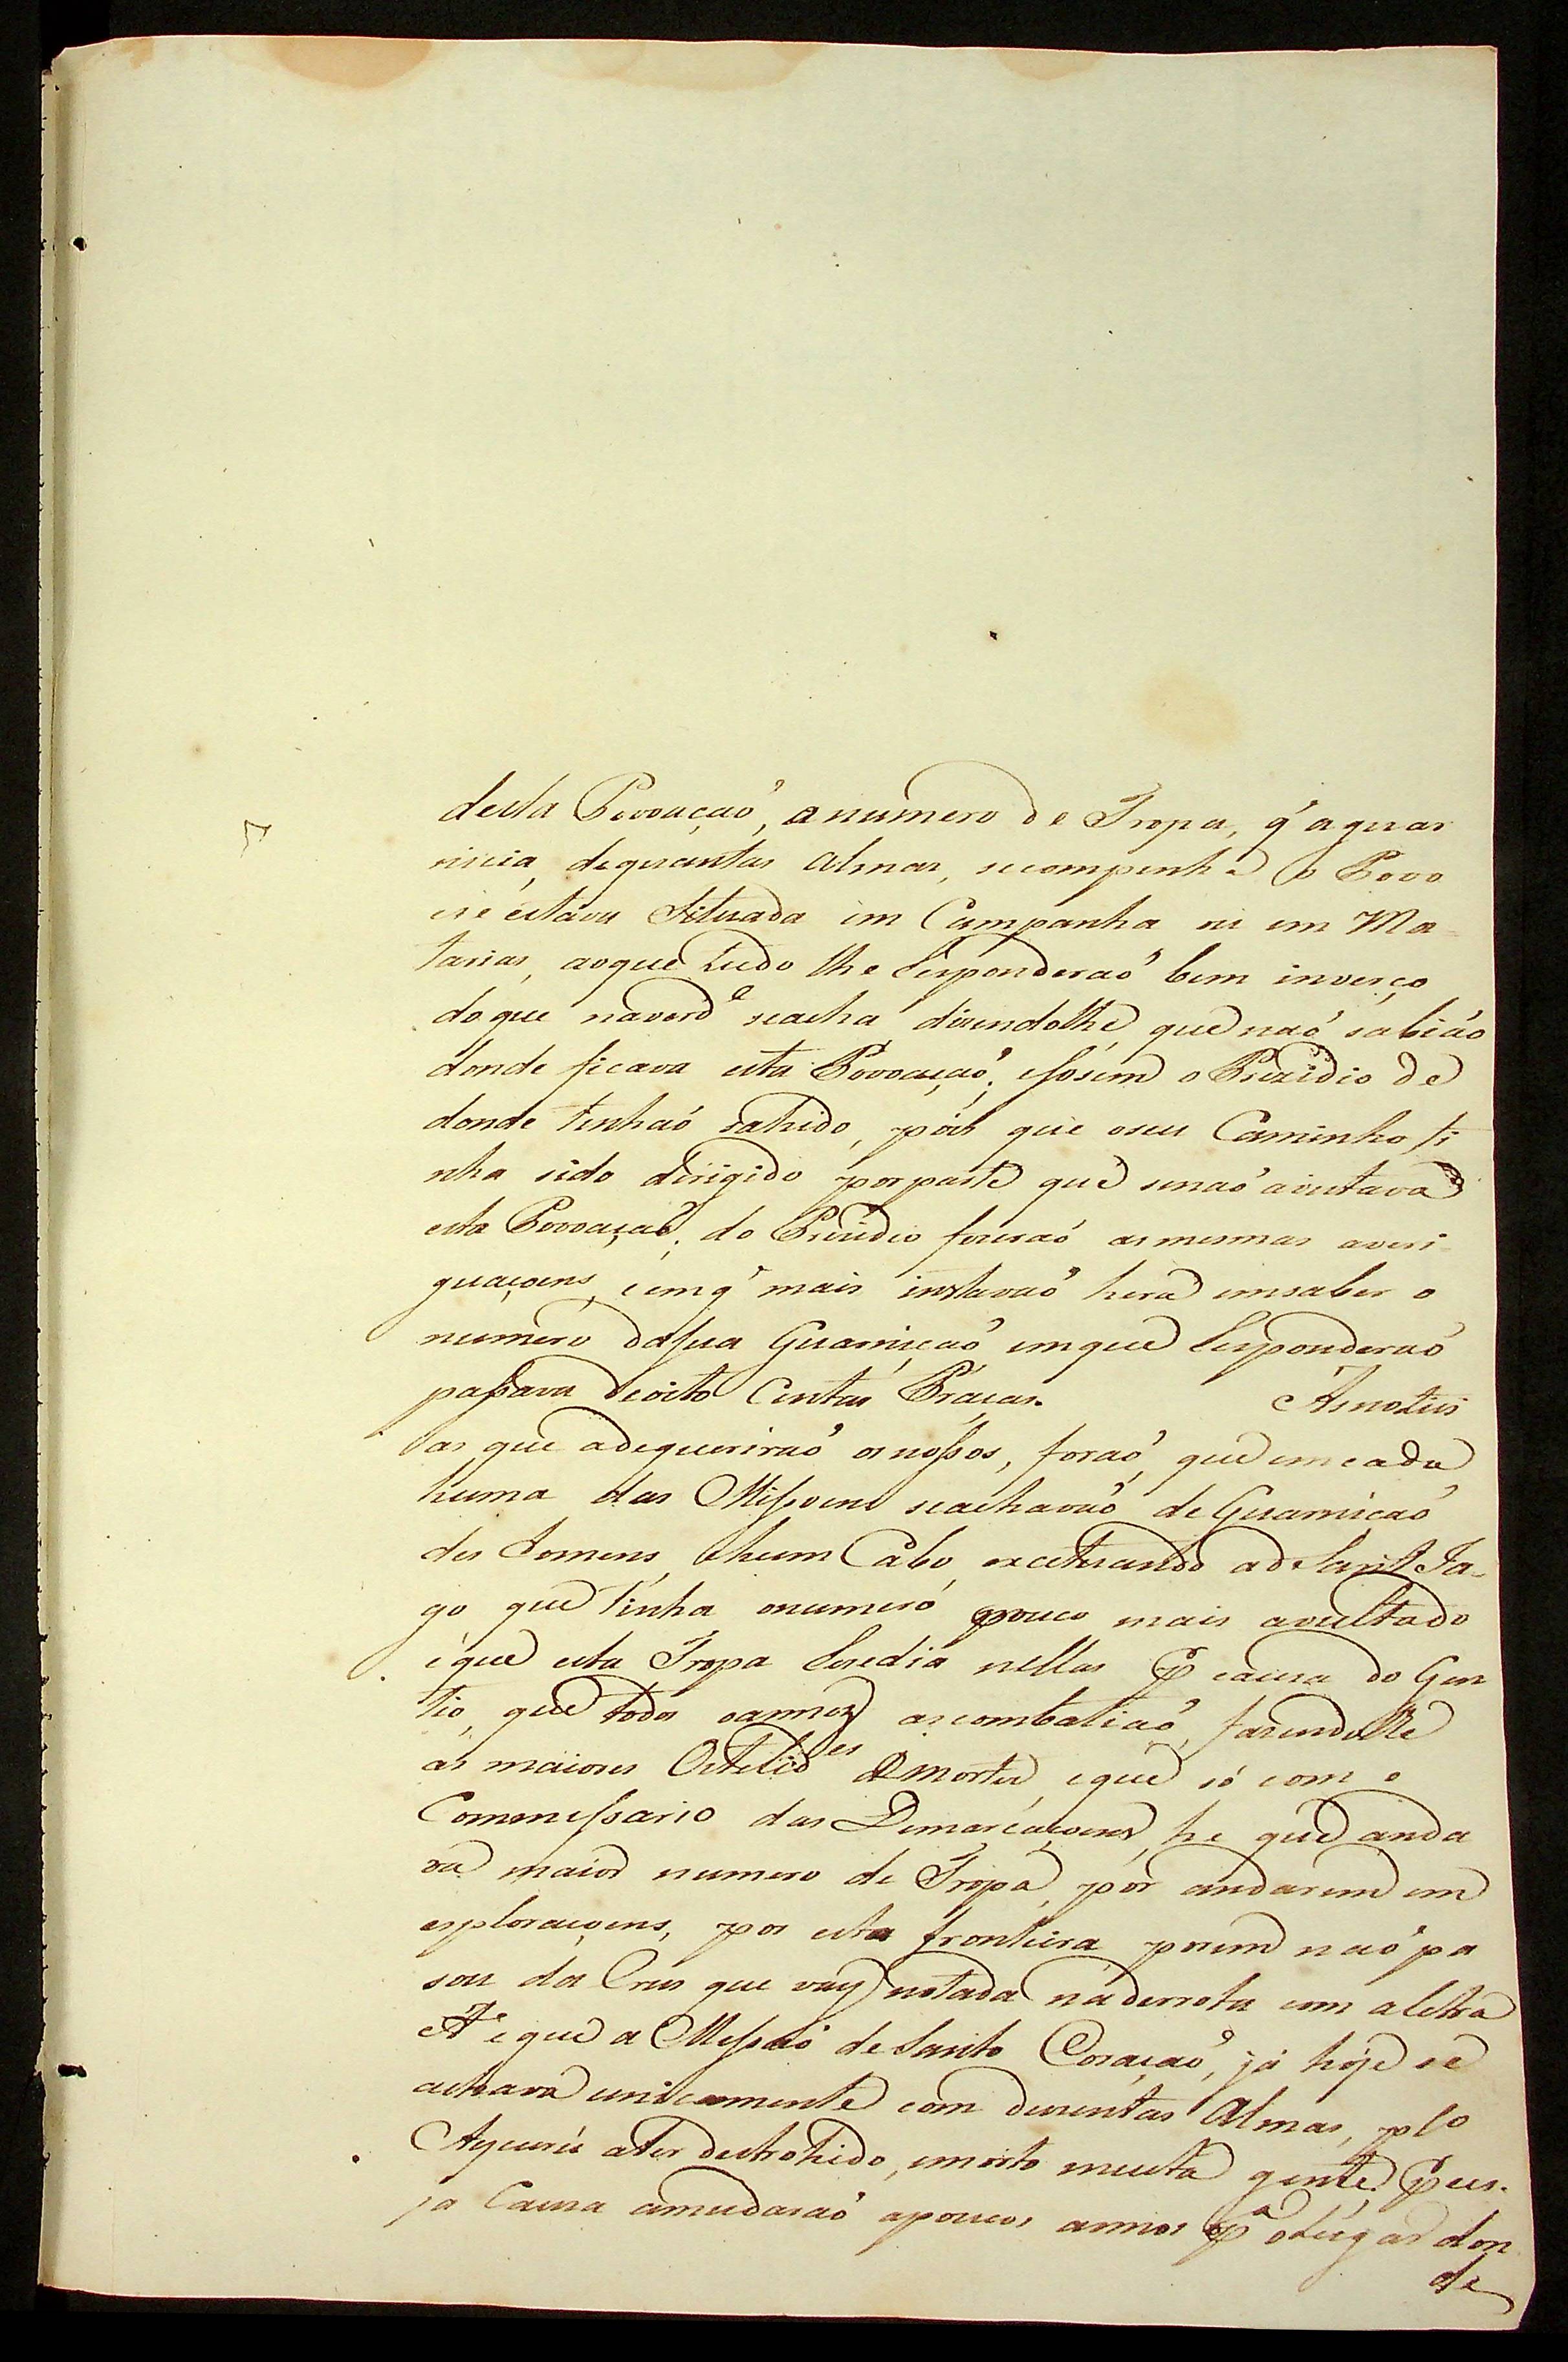 desta Povoaçaõ, a numero de Tropa, q' a guar
nicia, de quantas Almas, se compenha o Povo
e se estava Situada em Campanha ou em Ma-
tarias, ao que tudo lhe Responderaõ bem inverço
do que na verd.e se acha dizendolhe que naõ sabiaõ
donde ficava esta Povoaçaõ; e sosim o Prezidio de
donde tinhaõ sahido, pois que o seu Caminho ti
nha sido dirigido por parte que se naõ avistava
esta Povoaçaõ; do Prezidio fizeraõ as mesmas averi-
guaçoens, e em q' mais instavaõ hera em saber o
numero da sua Guarniçaõ em que Responderaõ
passava de oito Centas Praças. As noticí
as que adequeriraõ os nossos, foraõ, que em cada
huma das Missoens se achavaõ de Guarniçaõ
des homens, e hum Cabo, excetuando a de Sant Ia-
go que tinha o numero pouco mais avultado
e que esta Tropa Rezedia nellas p causa do Gen
tio, que todos os annos as combatiaõ, fazendolhe
as maiores Ostelid.es e mortes, e que só com o
Commissario das Demarcaçoens, he que anda
va maior numero de Tropa, por andarem em
esploraçoens, por esta fronteira porem naõ pa
sou da Crus que vay notada na derrota com a letra
A e que a Missaõ de Santo Coraçaõ, já hoje se
achava unicamente com duzentas Almas, plo
Aycurú a ter destrohido, e morto muita gente, p cu-
ja Causa a mudaraõ a poucos annos p.a o lugar don
de